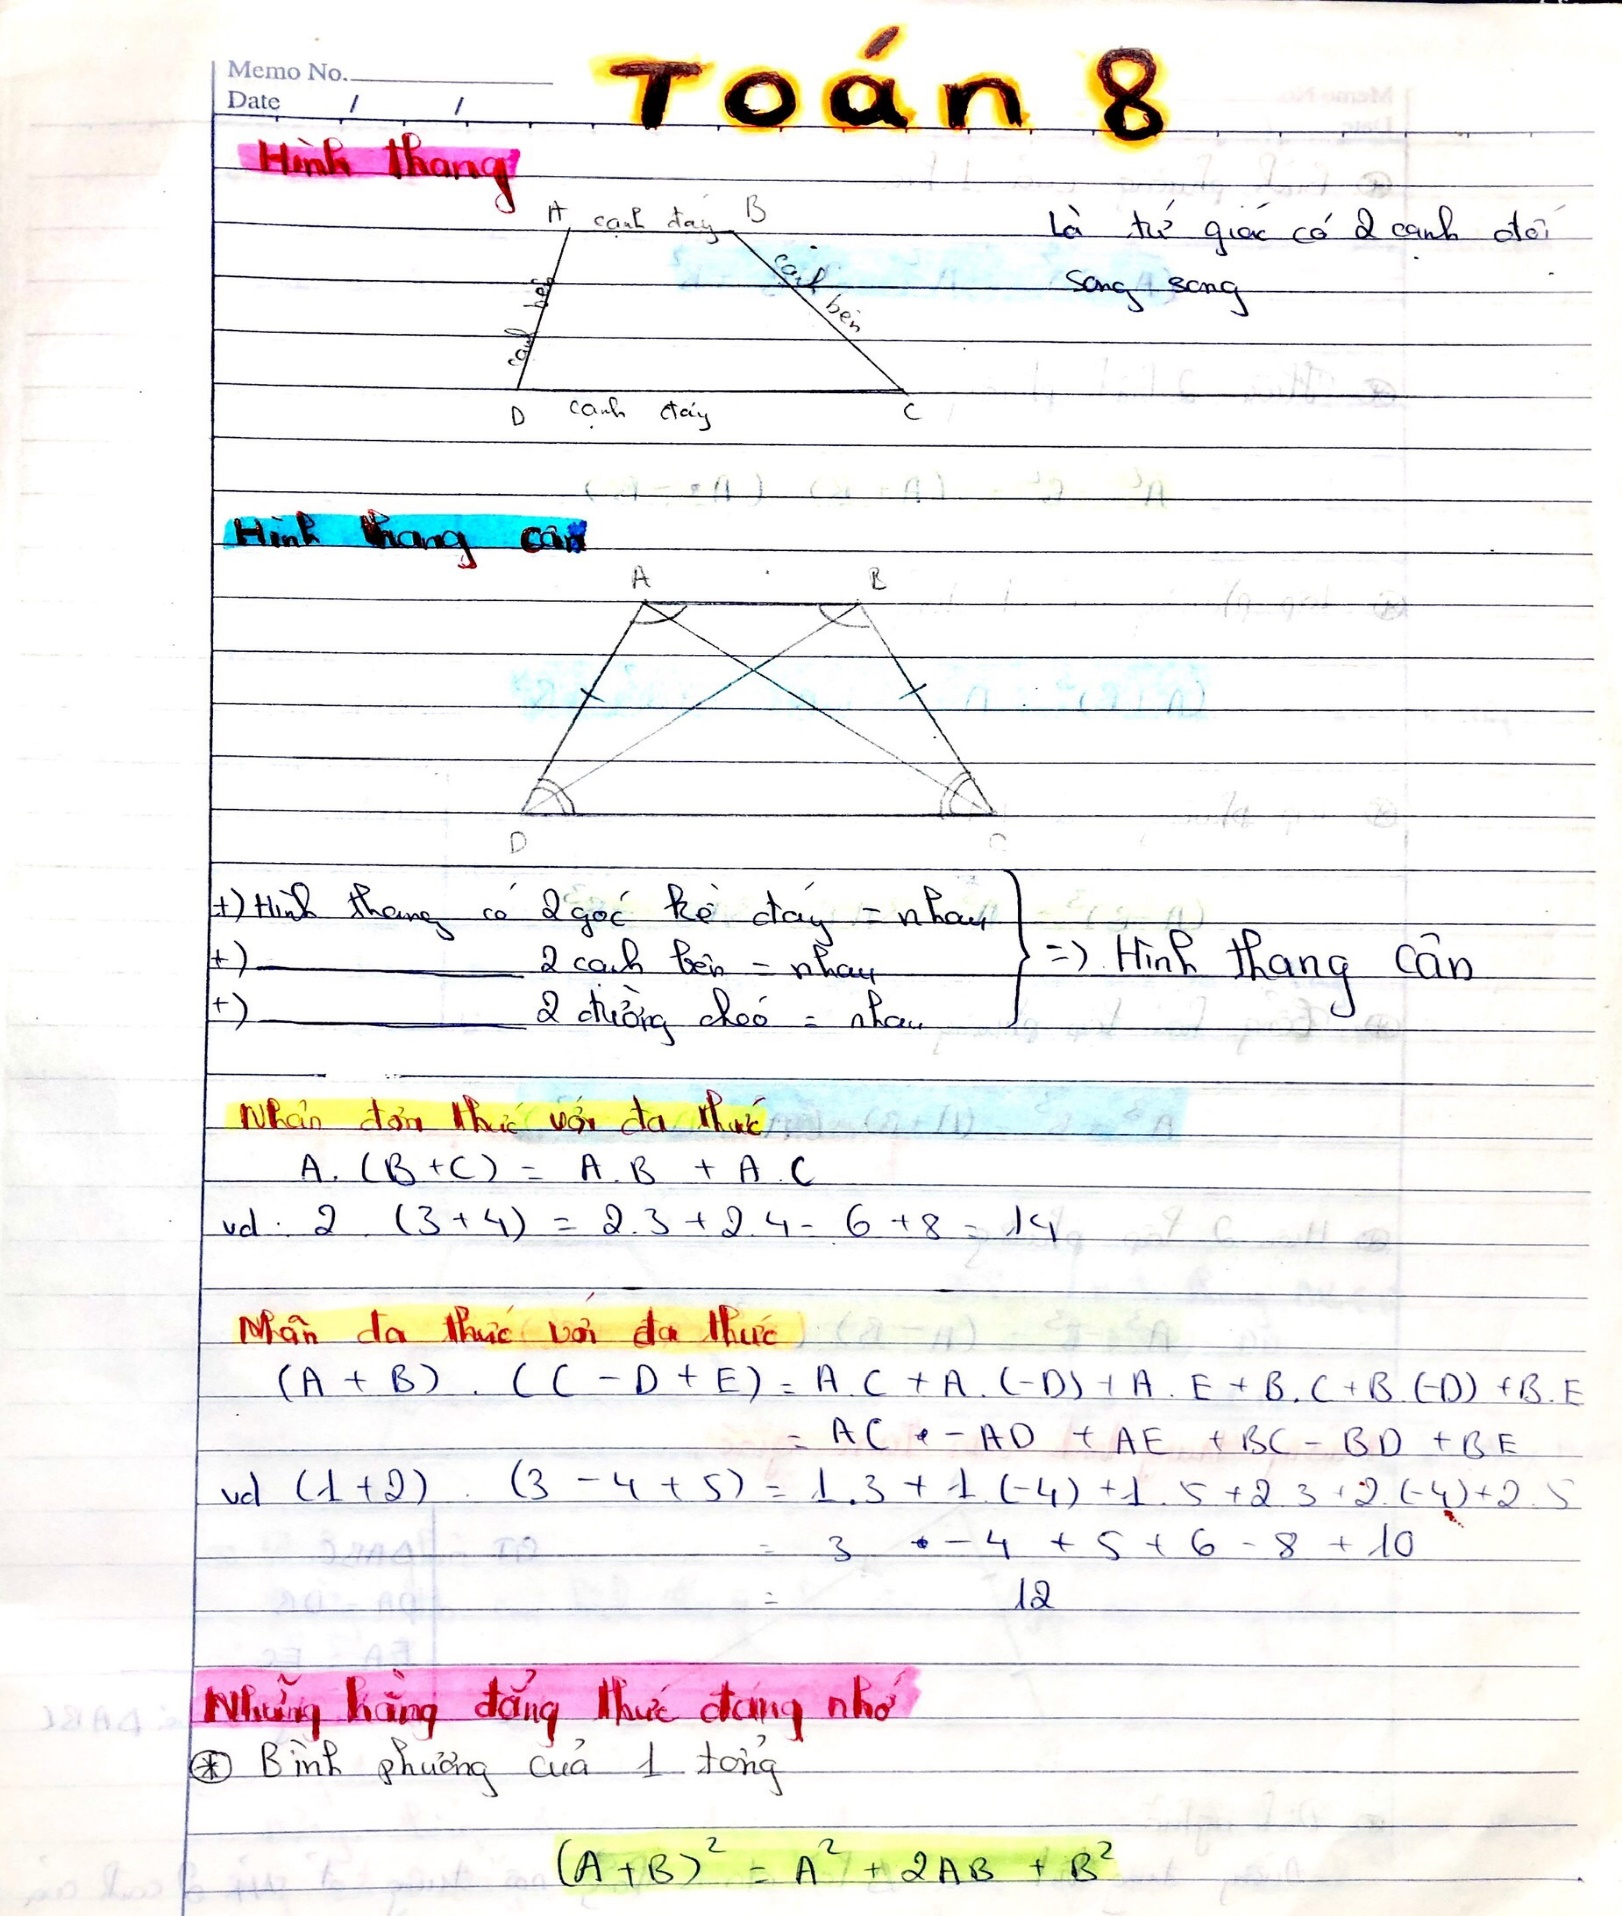 Memo No.
Date / /
Toán 8
Hình thang
A cạnh đáy B
Là tứ giác có 2 cạnh đối
song song
cạnh bên
cạnh bên
D cạnh đáy C
Hình thang cân
A B
D C
+) Hình thang có 2 góc kề đáy = nhau
+) ________ 2 cạnh bên = nhau
+) ________ 2 đường chéo = nhau
=> Hình thang cân
Nhân đơn thức với đa thức
A. (B+C) = A.B + A.C
vd: 2 . (3+4) = 2.3 + 2.4 = 6 + 8 = 14
Nhân đa thức với đa thức
(A + B) . (C - D + E) = A.C + A.(-D) + A.E + B.C + B.(-D) + B.E
= AC - AD + AE + BC - BD + BE
vd (1+2) . (3 - 4 + 5) = 1.3 + 1.(-4) + 1.5 + 2.3 + 2.(-4) + 2.5
= 3 - 4 + 5 + 6 - 8 + 10
= 12
Những hằng đẳng thức đáng nhớ
* Bình phương của 1 tổng
(A+B)² = A² + 2AB + B²